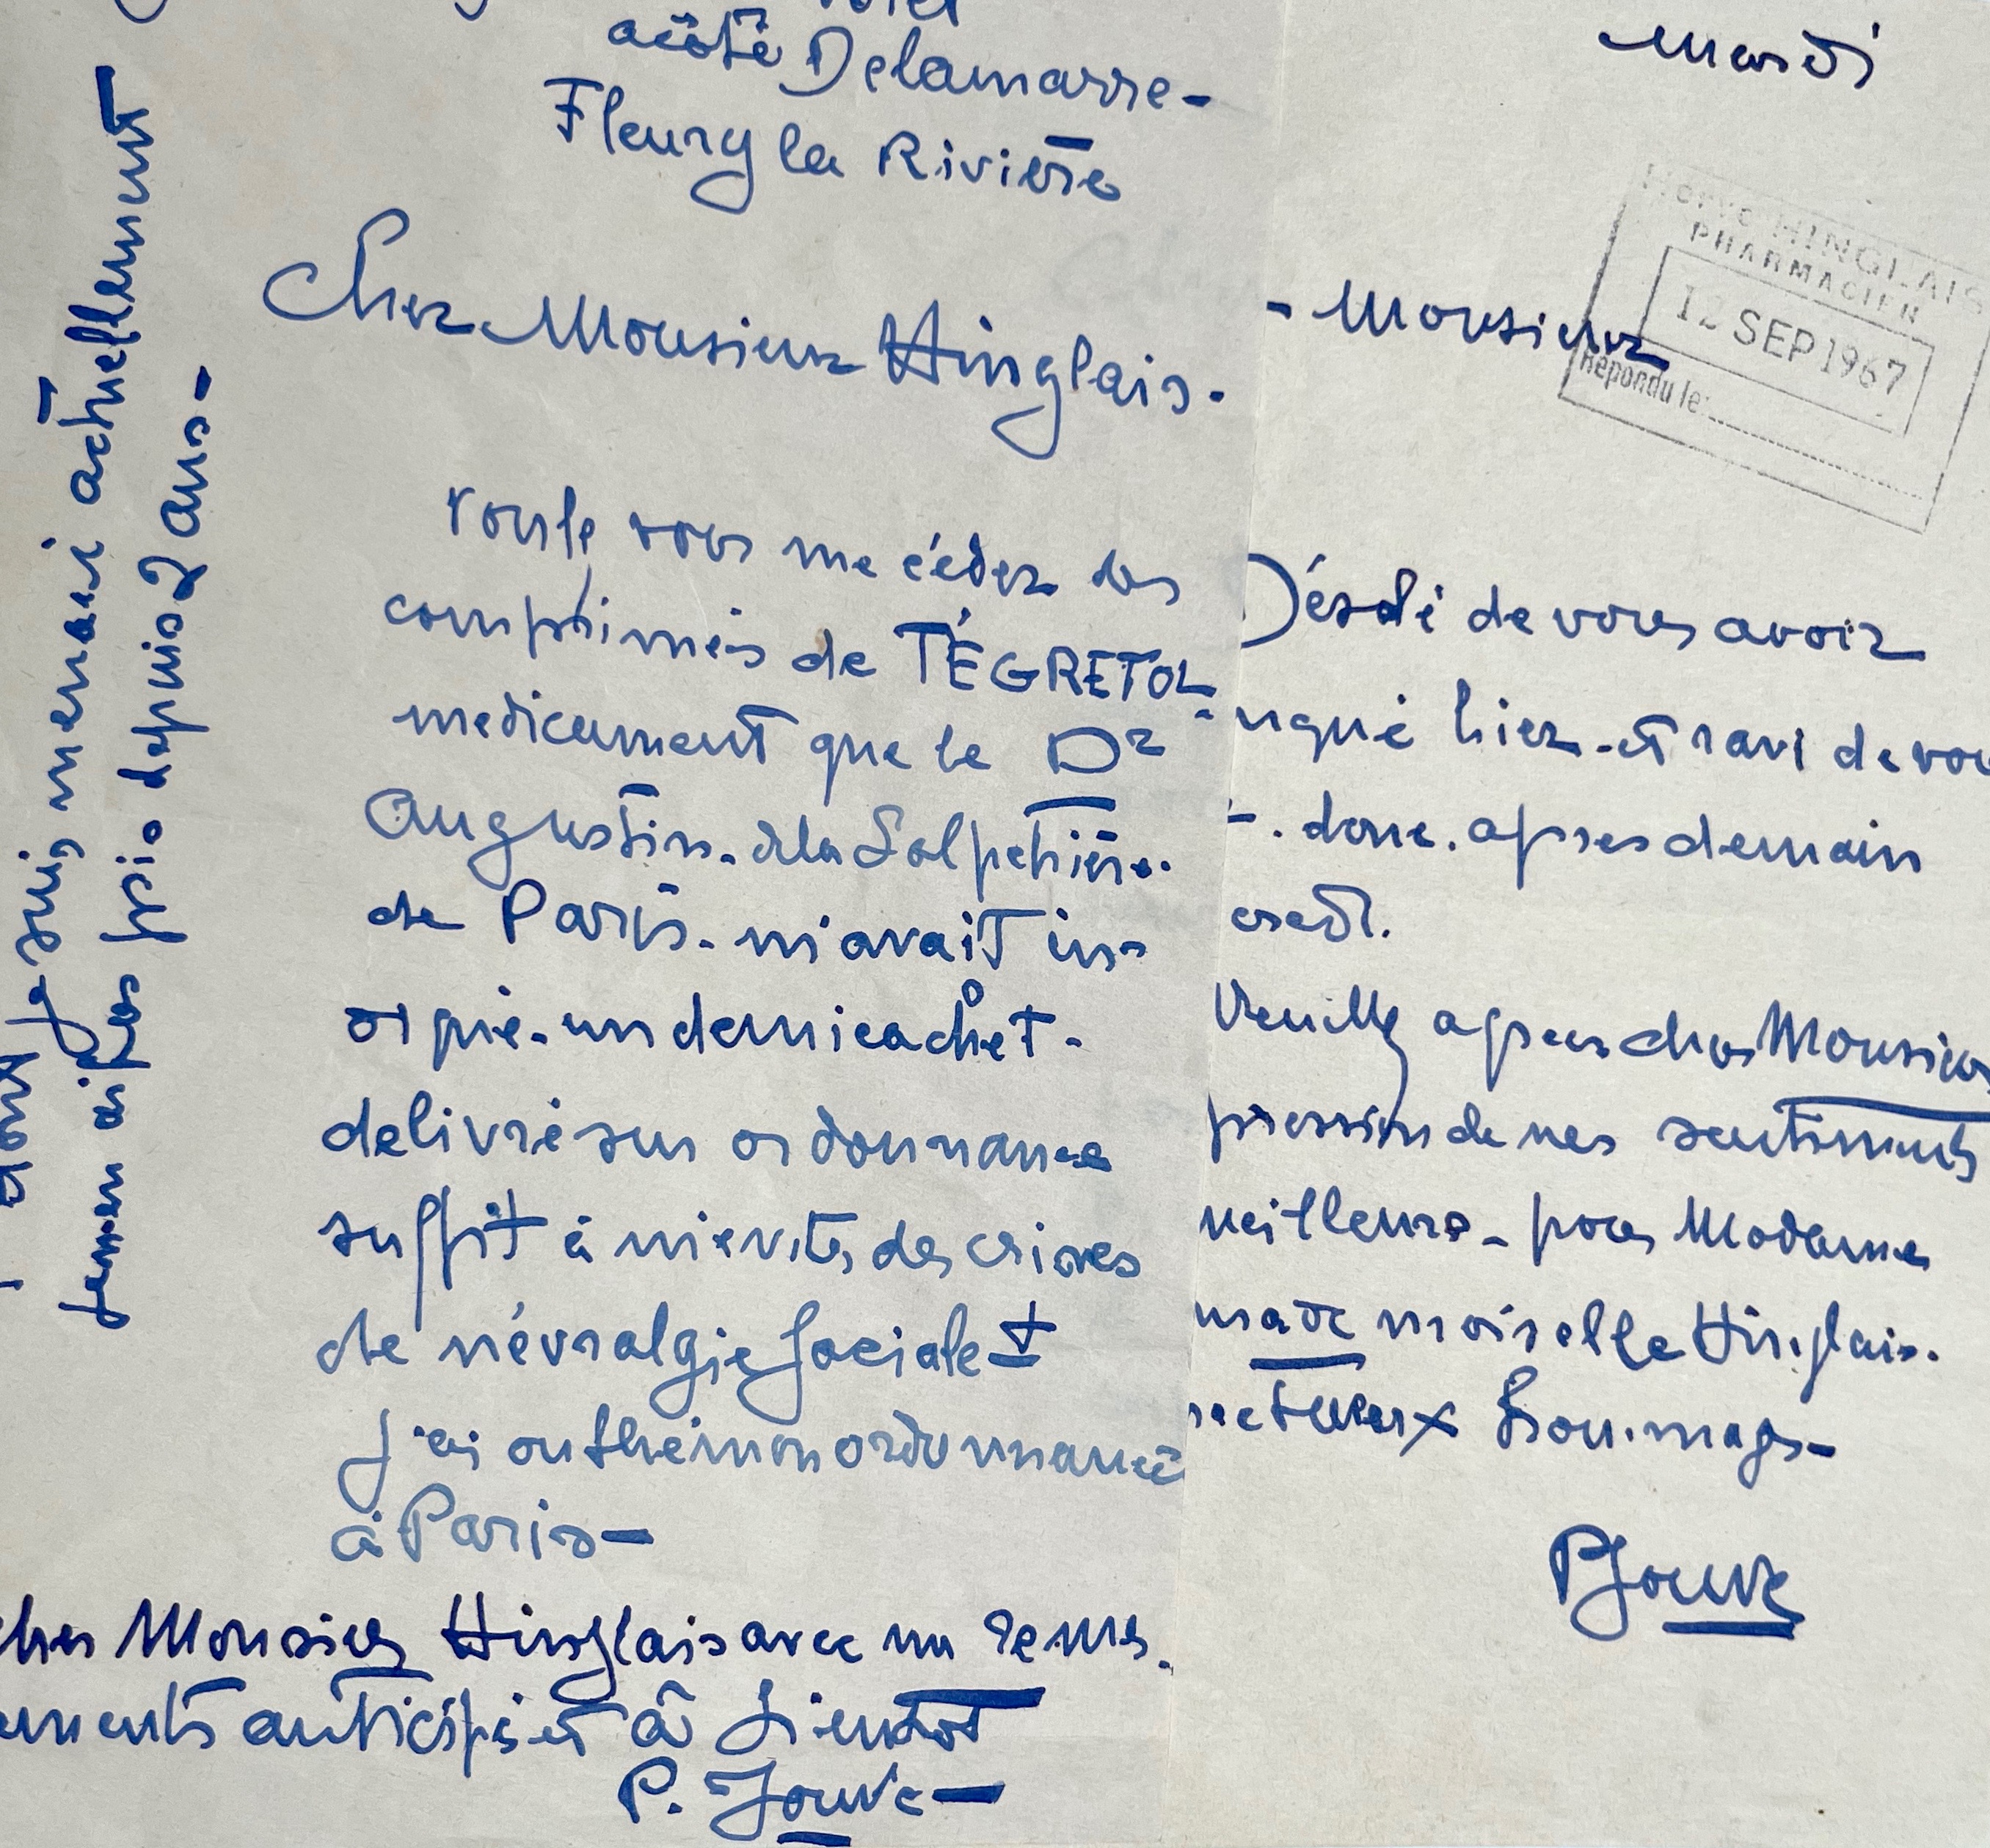 acôté Delamarre-
Fleury la Rivière
Cher Monsieur Hinglais.
voulez vous me céder des
comprimés de TÉGRETOL-
medicament que le Dr
Augustin. de la Salpetrière.
de Paris. m'avait ins-
orpié. un demi cachet.
delivré sur ordonnance
suffit à m'eviter des crises
de névralgie faciale et
j'ai oublié mon ordonnance
à Paris-
cher Monsieur Hinglais avec mn remer.
ements anticipés et à bientot
P. Jouve-
Je suis menacé actuellement
depuis 2 ans-
mardi
- Monsieur
Hervé HINGLAIS
PHARMACIEN
12 SEP 1967
Répondu le:
Désolé de vous avoir
nqué hier. et ravi de vou
. donc. apres demain
credi.
Veuillez agreer cher Monsieur
pression de mes sentiments
meilleurs- pour Madame
madEmoiselle Hinglais.
pectueux hommages-
PJouve